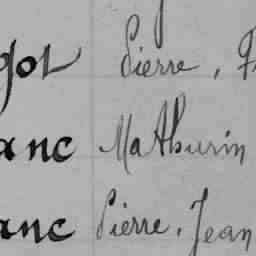 got Pierre, F
anc Mathurin
anc Pierre, Jean